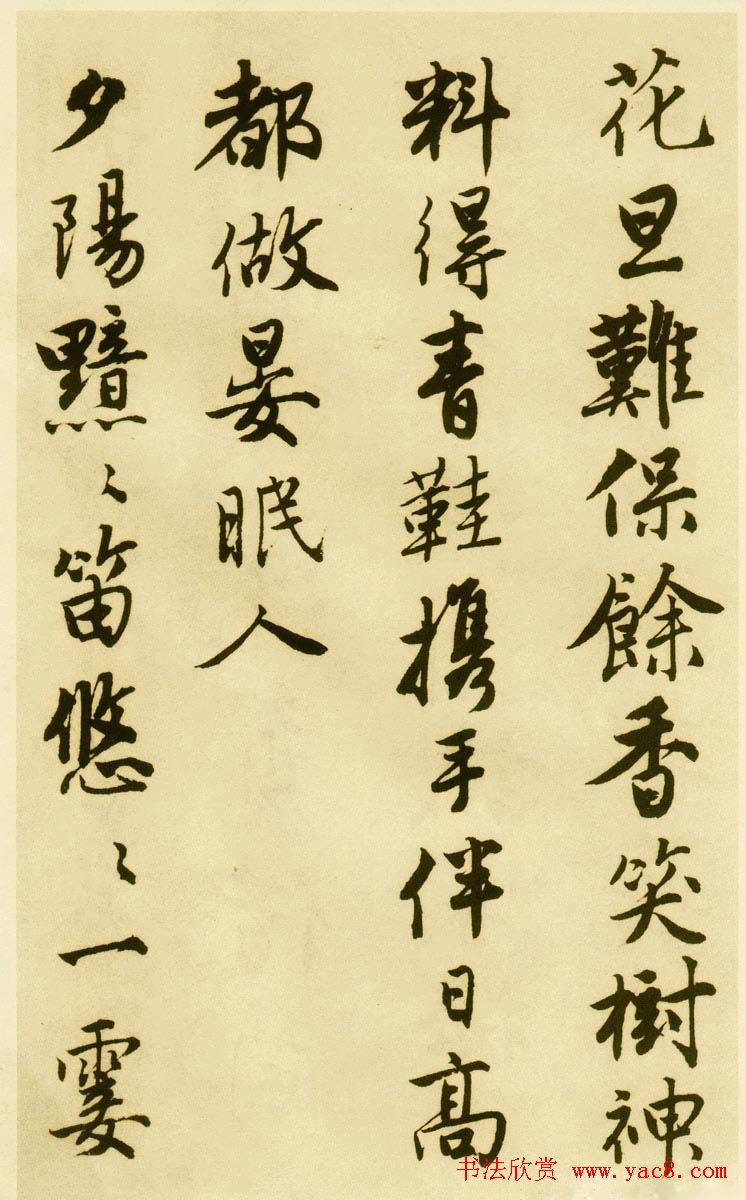 花旦難保餘香笑樹神
料得青鞋携手伴日高
都做晏眠人
夕陽黯〻笛悠〻一霎
书法欣赏 www.yac8.com